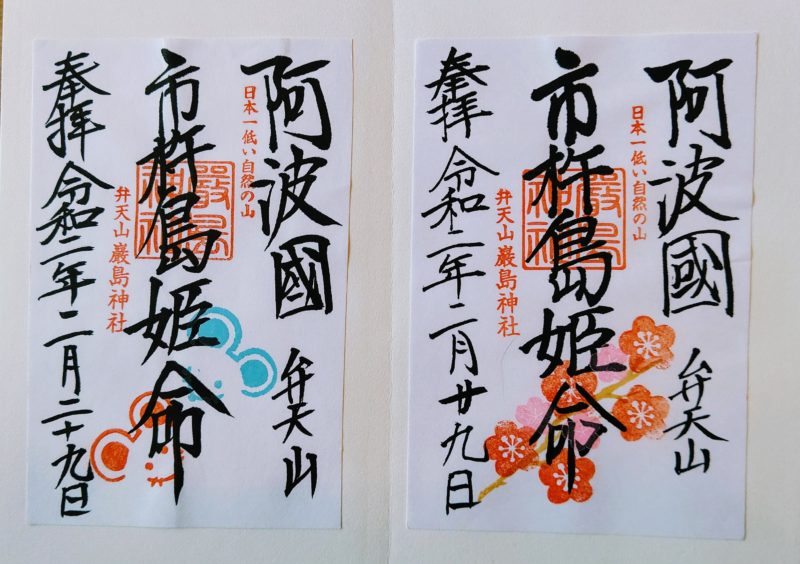 阿波國 弁天山
日本一低い自然の山
市杵島姫命
嚴島神社
弁天山 巌島神社
奉拝 令和二年二月二十九日
阿波國 弁天山
日本一低い自然の山
市杵島姫命
嚴島神社
弁天山 巌島神社
奉拝 令和二年二月廿九日